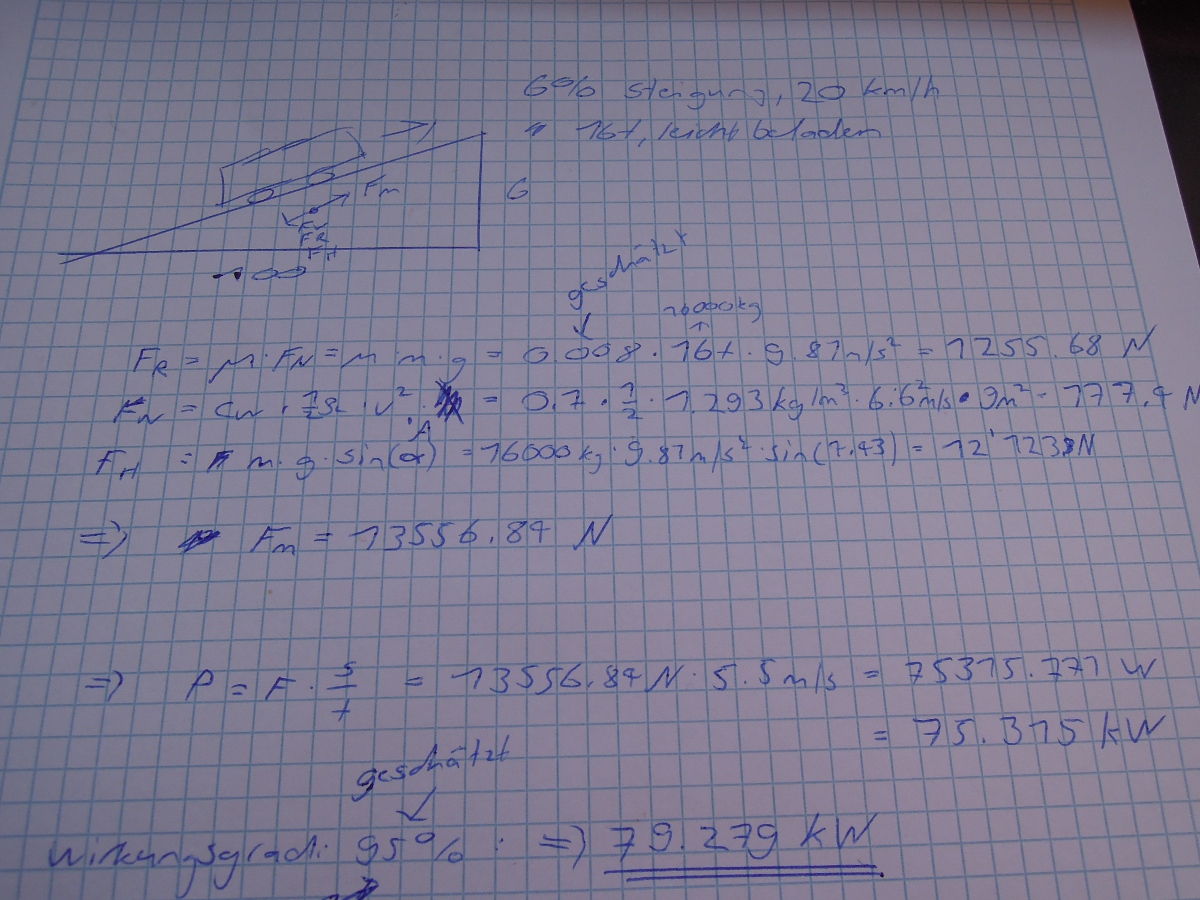 6% Steigung, 20 km/h
" 16t, leicht beladen
Fm
6
FR
FH
100
geschätzt
16000kg
FR = μ · FN = μ · m · g = 0.008 · 16t · 9.81m/s² = 1255.68 N
Fw = cw · ½ρ · v² · A = 0.7 · 1/2 · 1.293 kg/m³ · 6.6²m/s · 9m² = 177.4 N
FH = m · g · sin(α) = 16000kg · 9.81m/s² · sin(4.43) = 12'123 N
=> Fm = 13556.84 N
=> P = F · s/t = 13556.84 N · 5.5 m/s = 75315.771 W
= 75.315 kW
geschätzt
Wirkungsgrad: 95% : => 79.279 kW